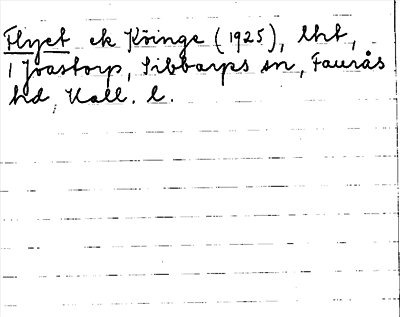 Flyet ek Köinge (1925), lht,
1 Joastorp, Sibbarps sn, Faurås
hd, Hall. l.